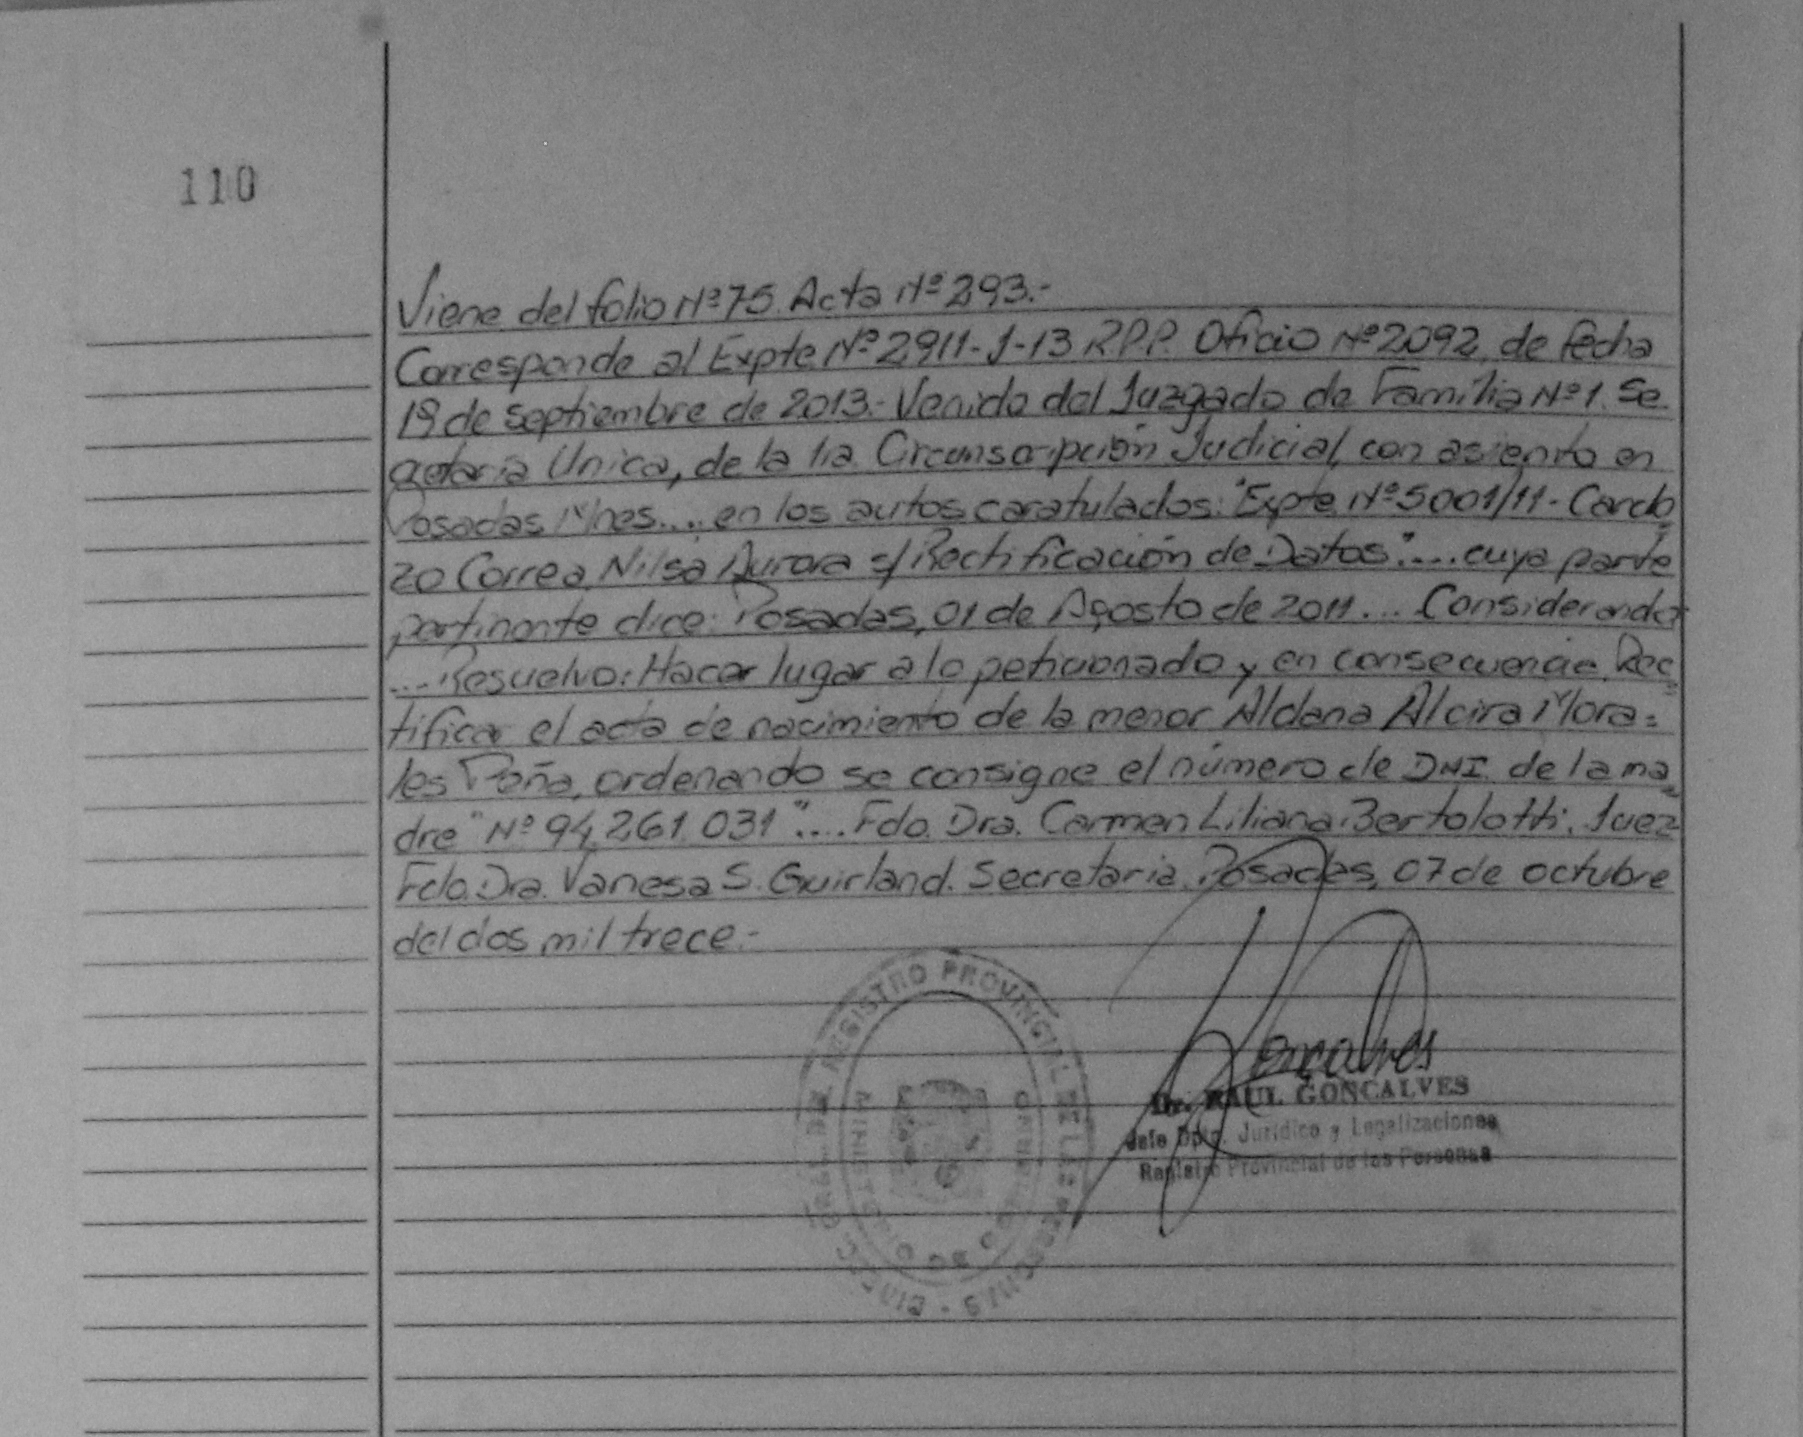 110
Viene del folio Nº 75. Acta Nº 293.-
Corresponde al Expte Nº 2911-J-13 R.P.P. Oficio Nº 2092, de fecha
19 de septiembre de 2013.- Venido del Juzgado de Familia Nº 1. Se
cretaria Unica, de la 1ra. Circunscripción Judicial, con asiento en
Posadas Mnes.... en los autos caratulados: "Expte. Nº 5001/11 - Cardo
zo Correa, Nilsa Aurora s/ Rectificación de Datos".... cuya parte
pertinente dice: Posadas, 01 de Agosto de 2011.... Considerando
.... Resuelvo: Hacer lugar a lo peticionado y en consecuencia Rec
tificar el acta de nacimiento de la menor Aldana Alcira Mora=
les Peña, ordenando se consigne el número de DNI. de la ma
dre "Nº 94.261.031".... Fdo. Dra. Carmen Liliana Bertolotti. Juez
Fdo. Dra. Vanesa S. Guirland. Secretaria. Posadas, 07 de octubre
del dos mil trece.-
REGISTRO PROVINCIAL DE LAS PERSONAS
MINISTERIO DE GOBIERNO
Goncalves
Dr. RAUL GONCALVES
Jefe Dpto. Jurídico y Legalizaciones
Registro Provincial de las Personas